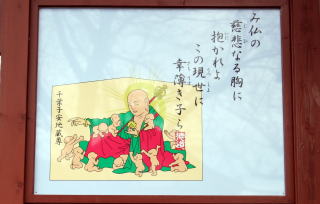 み仏の
慈悲なる胸に
抱かれよ
この現世に
幸薄き子ら
千葉子安地蔵尊